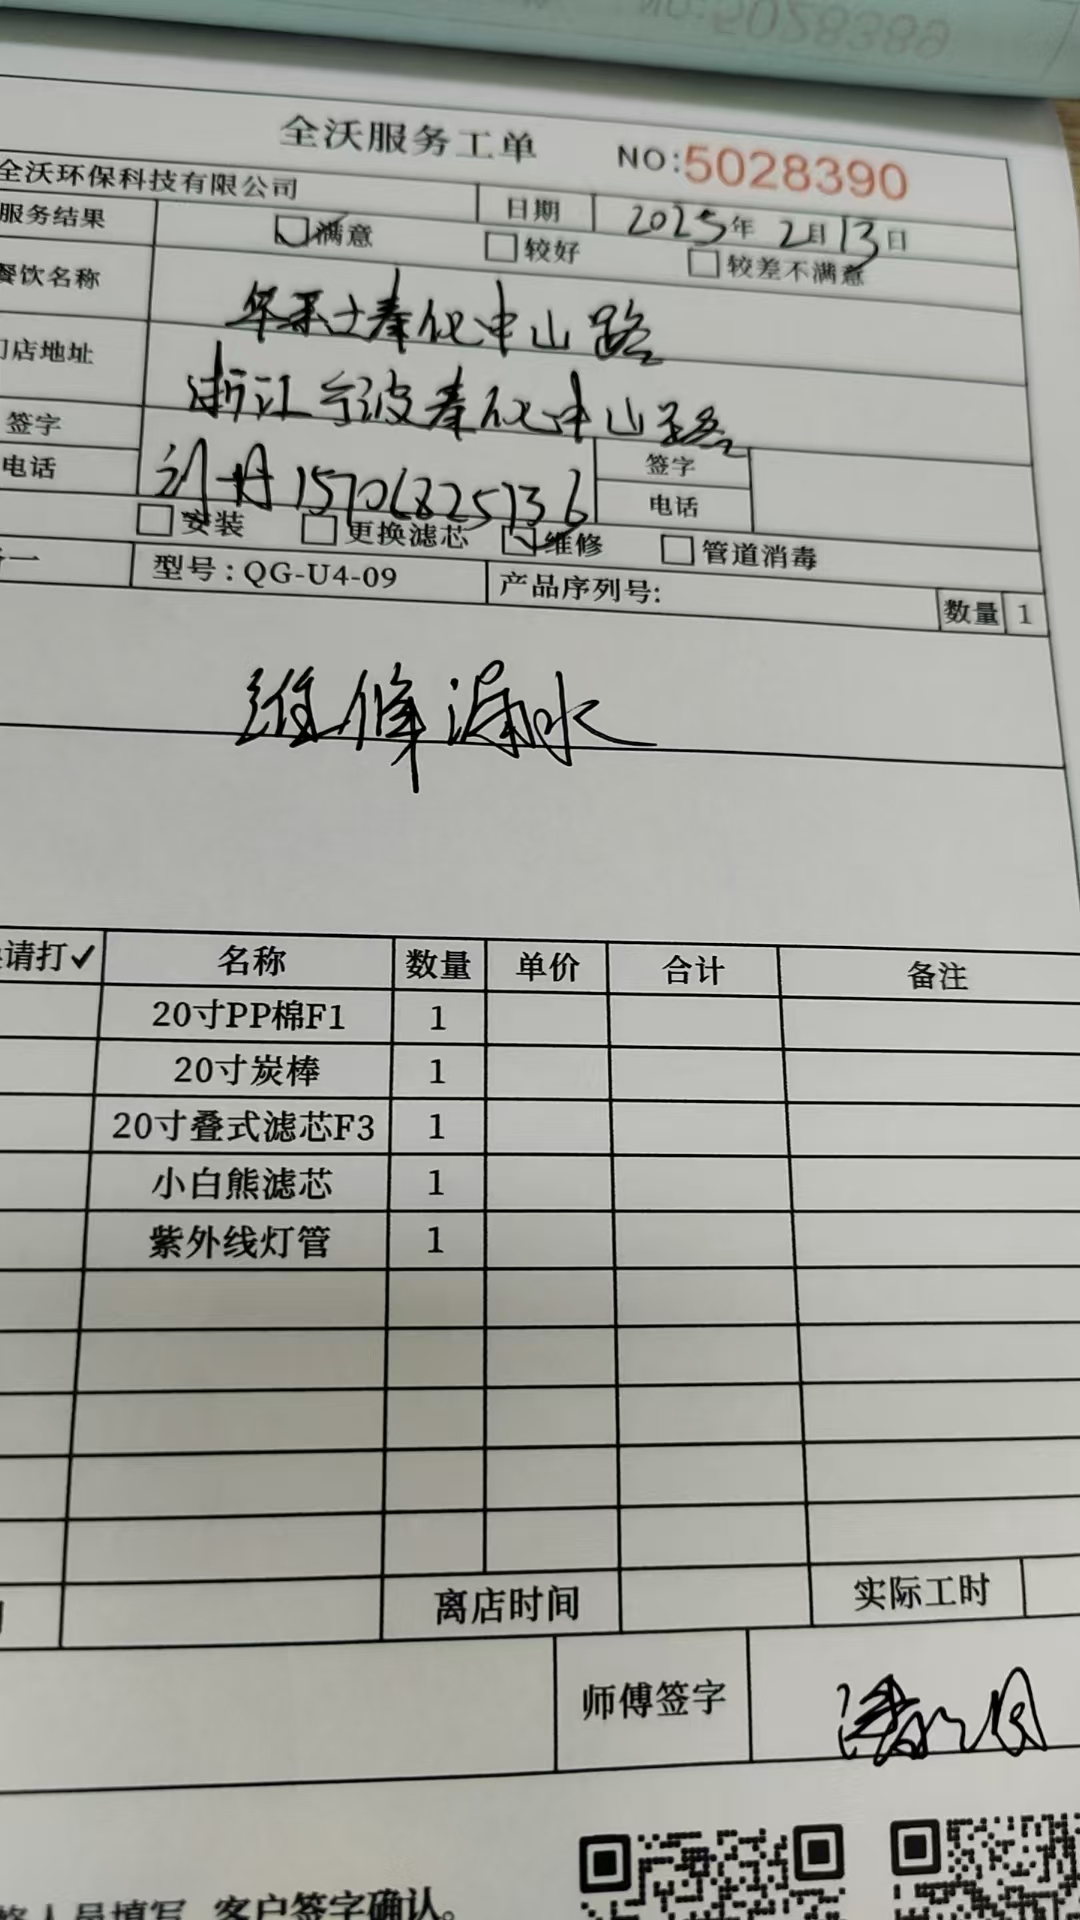 全沃服务工单 NO:5028390
全沃环保科技有限公司 日期 2025年2月13日
服务结果 满意 较好 较差不满意
餐饮名称 华莱士奉化中山路
门店地址 浙江宁波奉化中山路
签字 刘丹 签字
电话 15706825736 电话
安装 更换滤芯 维修 管道消毒
型号:QG-U4-09 产品序列号: 数量 1
维修漏水
请打✓ 名称 数量 单价 合计 备注
20寸PP棉F1 1
20寸炭棒 1
20寸叠式滤芯F3 1
小白熊滤芯 1
紫外线灯管 1
离店时间 实际工时
师傅签字
人员填写 客户签字确认。